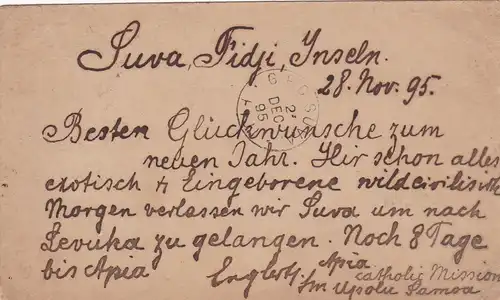 Suva, Fidji, Inseln.
28. Nov. 95.
G.P.O. SUVA
2
DEC
95
Besten Glückwünsche zum
neuen Jahr. Hir schon alles
exotisch & Eingeborene wildcivilisirt
Morgen verlassen wir Suva um nach
Levuka zu gelangen. Noch 8 Tage
bis Apia
Englert. Apia
catholic Mission
Upolu Samoa